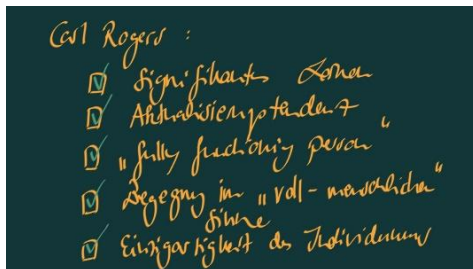 Carl Rogers :
Signifikantes Lernen
Aktualisierungstendenz
"fully functioning person"
Begegnung im "voll-menschlichen"
Sinne
Einzigartigkeit des Individuums